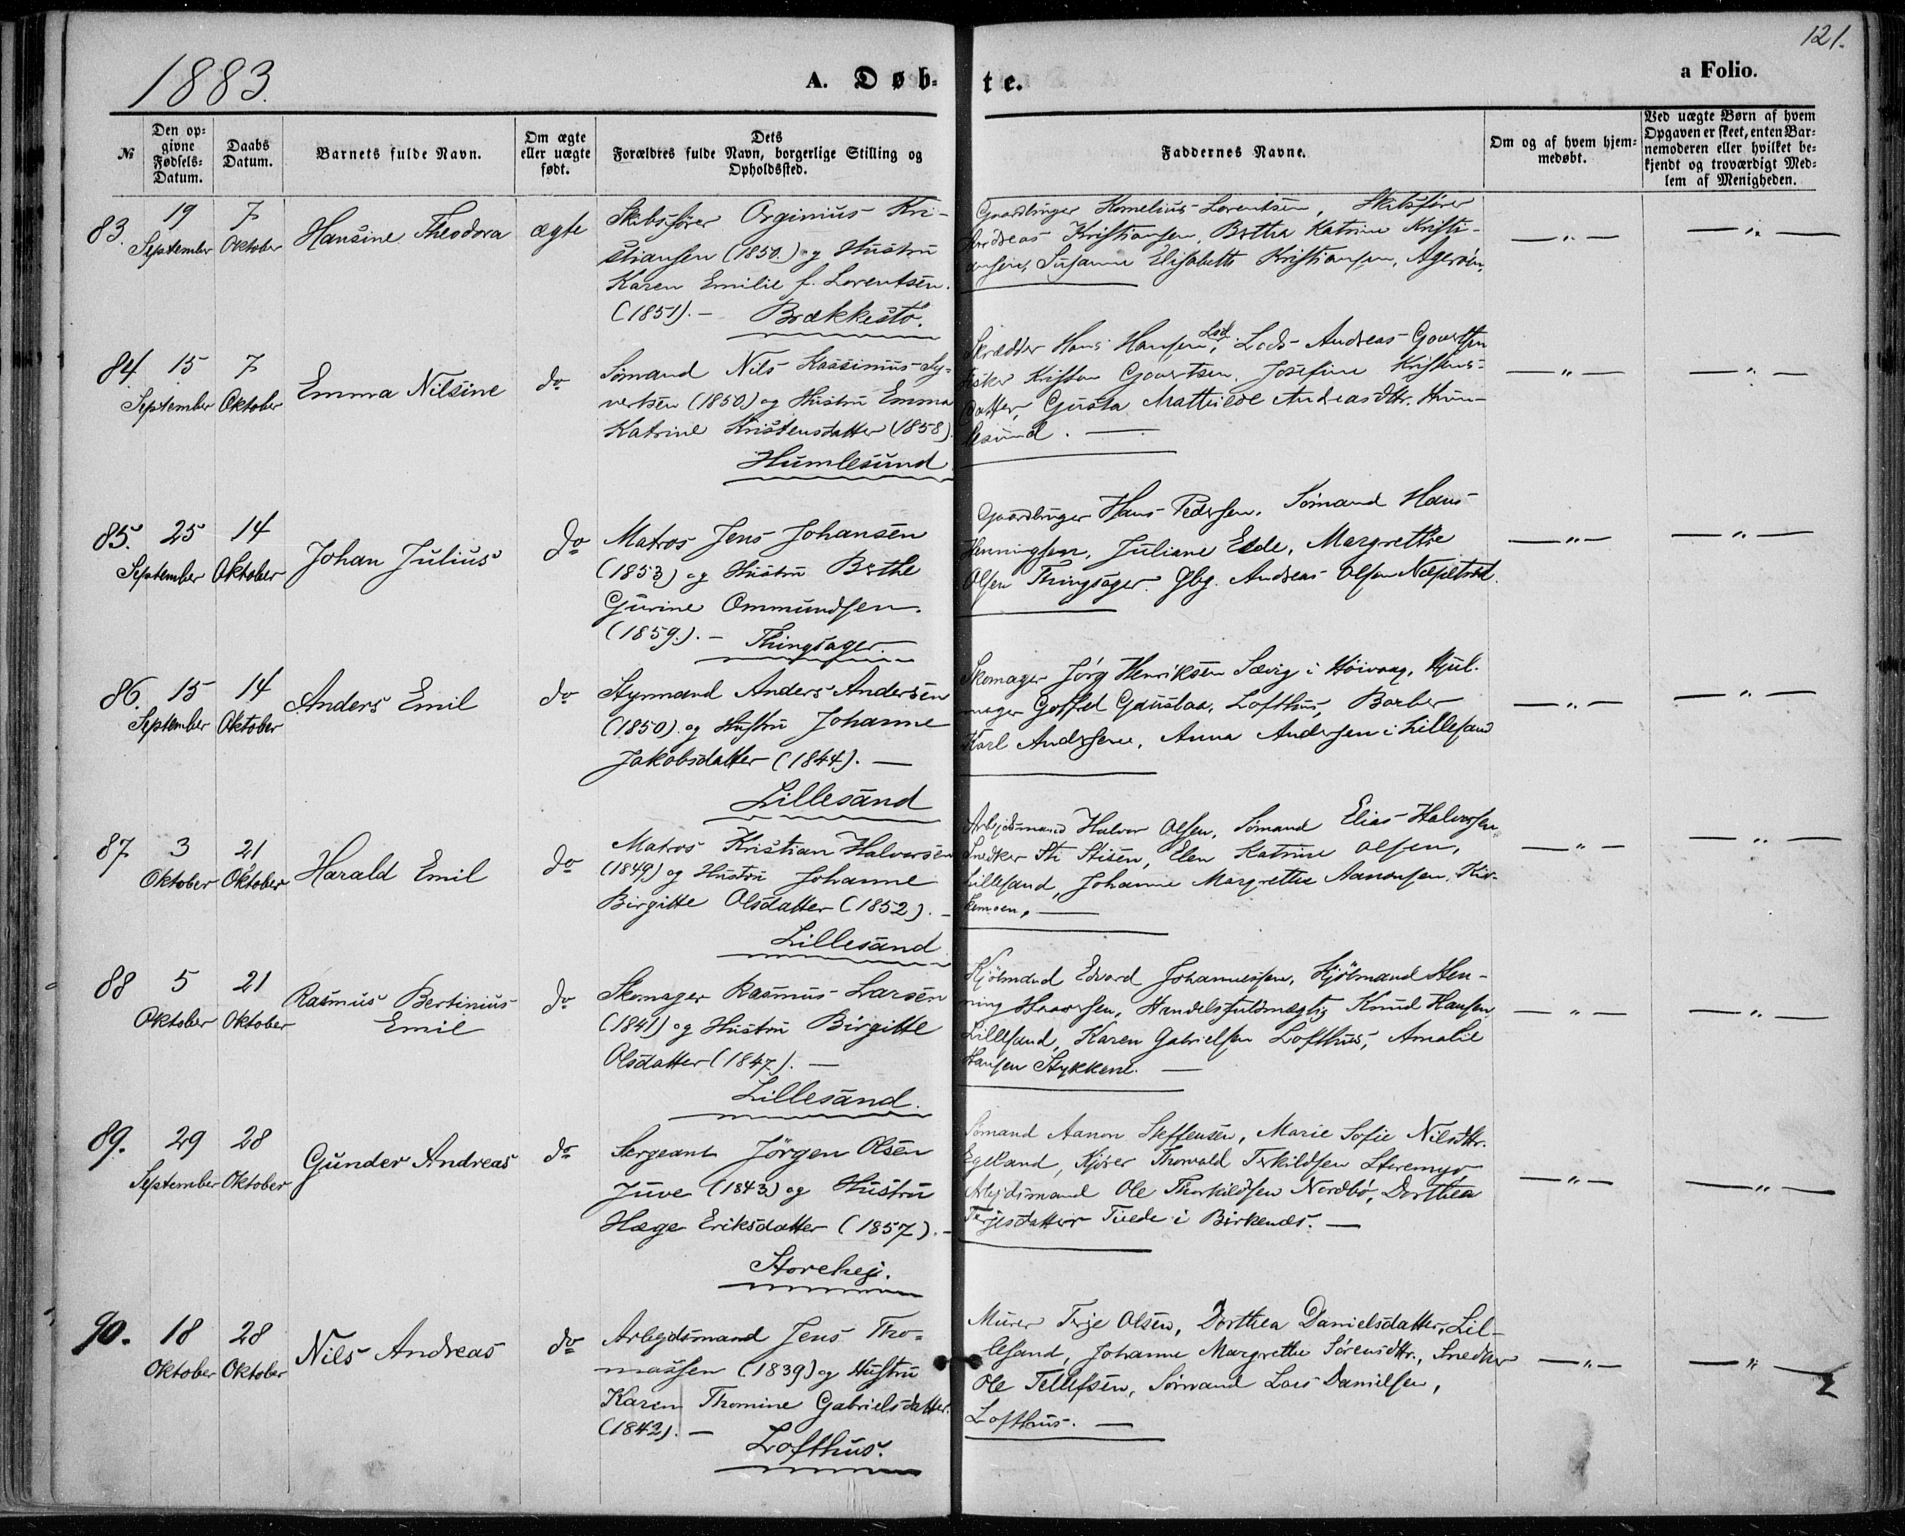 121.
1883.
A. Døb-
te.
a Folio.
№
Den op-
givne
Fødsels-
Datum.
Daabs
Datum.
Barnets fulde Navn.
Om ægte
eller uægte
født.
Dets
Forældres fulde Navn, borgerlige Stilling og
Opholdssted.
Faddernes Navne.
Om og af hvem hjem-
medøbt.
Ved uægte Børn af hvem
Opgaven er skeet, enten Bar-
nemoderen eller hvilket be-
kjendt og troværdigt Med-
lem af Menigheden.
83. 19 September 7 Oktober Hansine Theodora ægte
Skibsfører Orginius Kri-
stiansen (1850.) og Hustru
Karen Emilie f. Lorentsen.
(1851). — Brækkestø.
Gaardbruger Kornelius Lorentsen, Skibsfører
Andreas Kristiansen, Berthe Katrine Kristi-
ansen, Susanne Elisabeth Kristiansen, Agerøen.
— „ — — „ —
84. 15 September 7 Oktober Emma Nilsine do
Sømand Nils Kassinius Sy-
vertsen (1850) og Hustru Emma
Katrine Kristensdatter (1858).
Humlesund
Skrædder Hans Hansen, Lsd. Lods Andreas Govertsen
Fisker Kristen Govertsen, Josefine Kristens-
datter, Gusta Mathilde Andreasdttr. Hum-
lesund. —
— „ — — „ —
85. 25 September 14 Oktober Johan Julius do
Matros Jens Johansen
(1853) og Hustru Berthe
Gurine Ommundsen.
(1859.). — Thingsager.
Gaardbruger Hans Pedersen, Sømand Hans
Henningsen, Juliane Eide, Margrethe
Olsen Thingsager. Gbg. Andreas Olsen Næpetved.
— „ — — „ —
86. 15 September 14 Oktober Anders Emil do
Styrmand Anders Andersen
(1850) og Hustru Johanne
Jakobsdatter (1844). —
Lillesand
Skomager Jørg Henriksen Sævig i Høivaag, Hjul-
mager Gotfred Gaustaa, Lofthus, Barber
Karl Andersen, Anna Andersen i Lillesand
— „ — — „ —
87 3 Oktober 21 Oktober Harald Emil do
Matros Kristian Halvorsen
(1849) og Hustru Johanne
Birgitte Olsdatter (1852). —
Lillesand
Arbejdsmand Halvor Olsen, Sømand Elias Halvorsen
Snedker Sti Stisen, Elen Katrine Olsen,
Lillesand, Johanne Margrethe Aanonsen, Kir-
kemoen. —
— „ — — „ —
88 5 Oktober 21 Oktober Rasmus Bertinius
Emil do
Skomager Rasmus Larsen
(1841) og Hustru Birgitte
Olsdatter (1847). —
Lillesand.
Kjøbmand Edvard Johannessen, Kjøbmand Hen-
ning Haavorsen, Handelsfuldmægtig Knud Hansen,
Lillesand, Karen Gabrielsen Lofthus, Amalie
Hansen Stykkene. —
— „ — — „ —
89. 29 September 28 Oktober Gunder Andreas do
Sergeant Jörgen Olsen
Juve (1843) og Hustru
Hæge Eriksdatter (1857). —
Storehej.
Sømand Aanon Steffensen, Marie Sofie Nilsdttr.
Egeland, Kjører Thorvald Terkildsen Steremyr
Arbejdsmand Ole Thorkildsen Nordbø, Dorthea
Terjesdatter Tvede i Birkenes. —
— „ — — „ —
90. 18 Oktober 28 Oktober Nils Andreas do
Arbejdsmand Jens Tho-
massen (1839) og Hustru
Karen Thomine Gabrielsdatter.
(1842). — Lofthus.
Murer Terje Olsen, Dorthea Danielsdatter, Lil-
lesand, Johanne Margrethe Sørensdttr., Snedker
Ole Tellefsen, Sømand Lars Danielsen,
Lofthus. —
— „ — — „ —